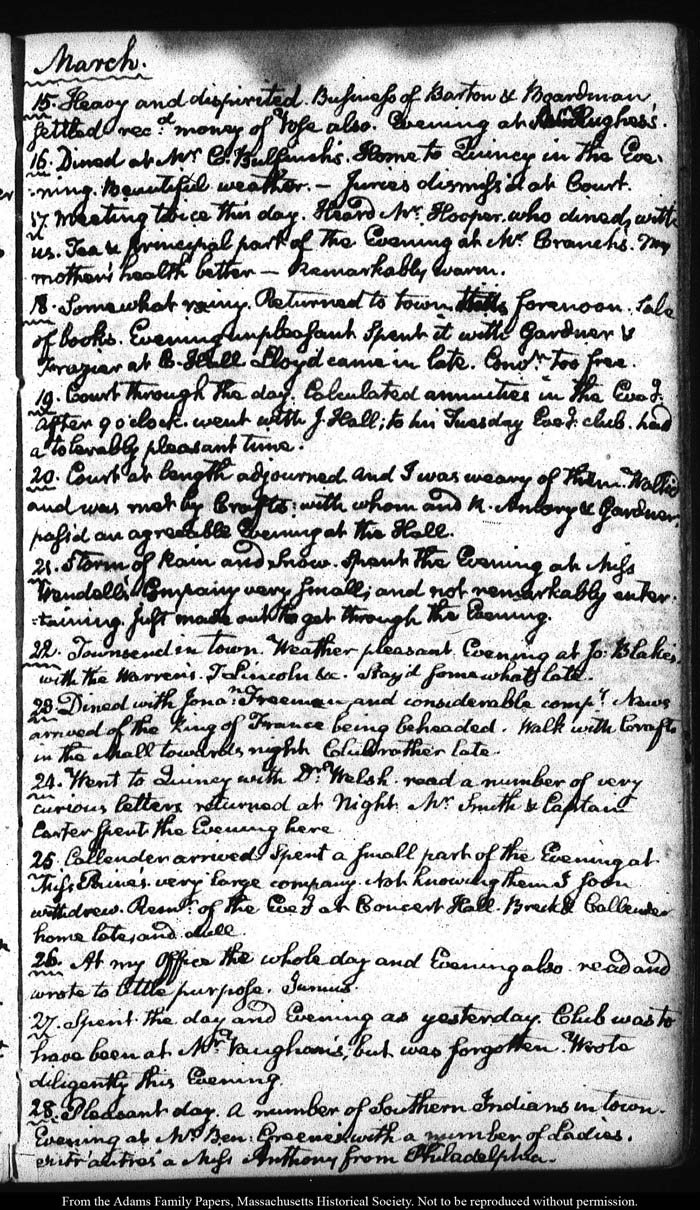 March.
15. Heavy and dispirited. Business of Barton & Boardman
settled rec.d money of Fosse also. Evening at Hughes's.
16. Dined at Mr. C. Bulfinch's. Home to Quincy in the Eve-
-ning. Beautiful weather. — Juries dismiss'd at Court.
17. Meeting twice this day. Heard Mr. Hooper, who dined, with
us. Tea & principal part of the Evening at Mr. Cranch's. My
mother's health better — Remarkably warm.
18. Somewhat rainy. Returned to town forenoon. Sale
of books. Evening unpleasant spent it with Gardner &
Frazier at C. Hall. Lloyd came in late. Conv.n too free.
19. Court through the day. Calculated annuities in the Eve.g.
After 9 o'clock went with J. Hall; to his Tuesday Eve.g. club. had
a tolerably pleasant time.
20. Court at length adjourned. And I was weary of them. Walk'd
and was met by Crafts: with whom and R. Amory & Gardner,
pass'd an agreeable Evening at the Hall.
21. Storm of Rain and Snow. Spent the Evening at Miss
Wendell's. Company very small; and not remarkably enter-
-taining. Just made out to get through the Evening.
22. Townsend in town. Weather pleasant. Evening at Jo: Blake's
with the Warren's. T. Lincoln &c. Stay'd somewhat late.
23. Dined with Jona.n Freeman, and considerable comp.y News
arrived of the King of France being beheaded. Walk with Crafts
in the mall towards night. Club rather late.
24. Went to Quincy with Dr. Welsh. read a number of very
curious letters returned at Night. Mr. Smith & Captain
Carter spent the Evening here.
25. Callender arrived. Spent a small part of the Evening at
Miss Paine's. very large company. Not knowing them I soon
withdrew. Rem.r of the Eve.g at Concert Hall. Breck & Callender
home late, and dull.
26. At my Office the whole day and Evening also. read and
wrote to little purpose. Junius.
27. Spent the day and Evening as yesterday. Club was to
have been at Mr. Vaughan's, but was forgotten. Wrote
diligently this Evening.
28. Pleasant day. A number of Southern Indians in town.
Evening at Mr. Ben: Greene's with a number of Ladies.
entr'autres a Miss Anthony from Philadelphia.
From the Adams Family Papers, Massachusetts Historical Society. Not to be reproduced without permission.